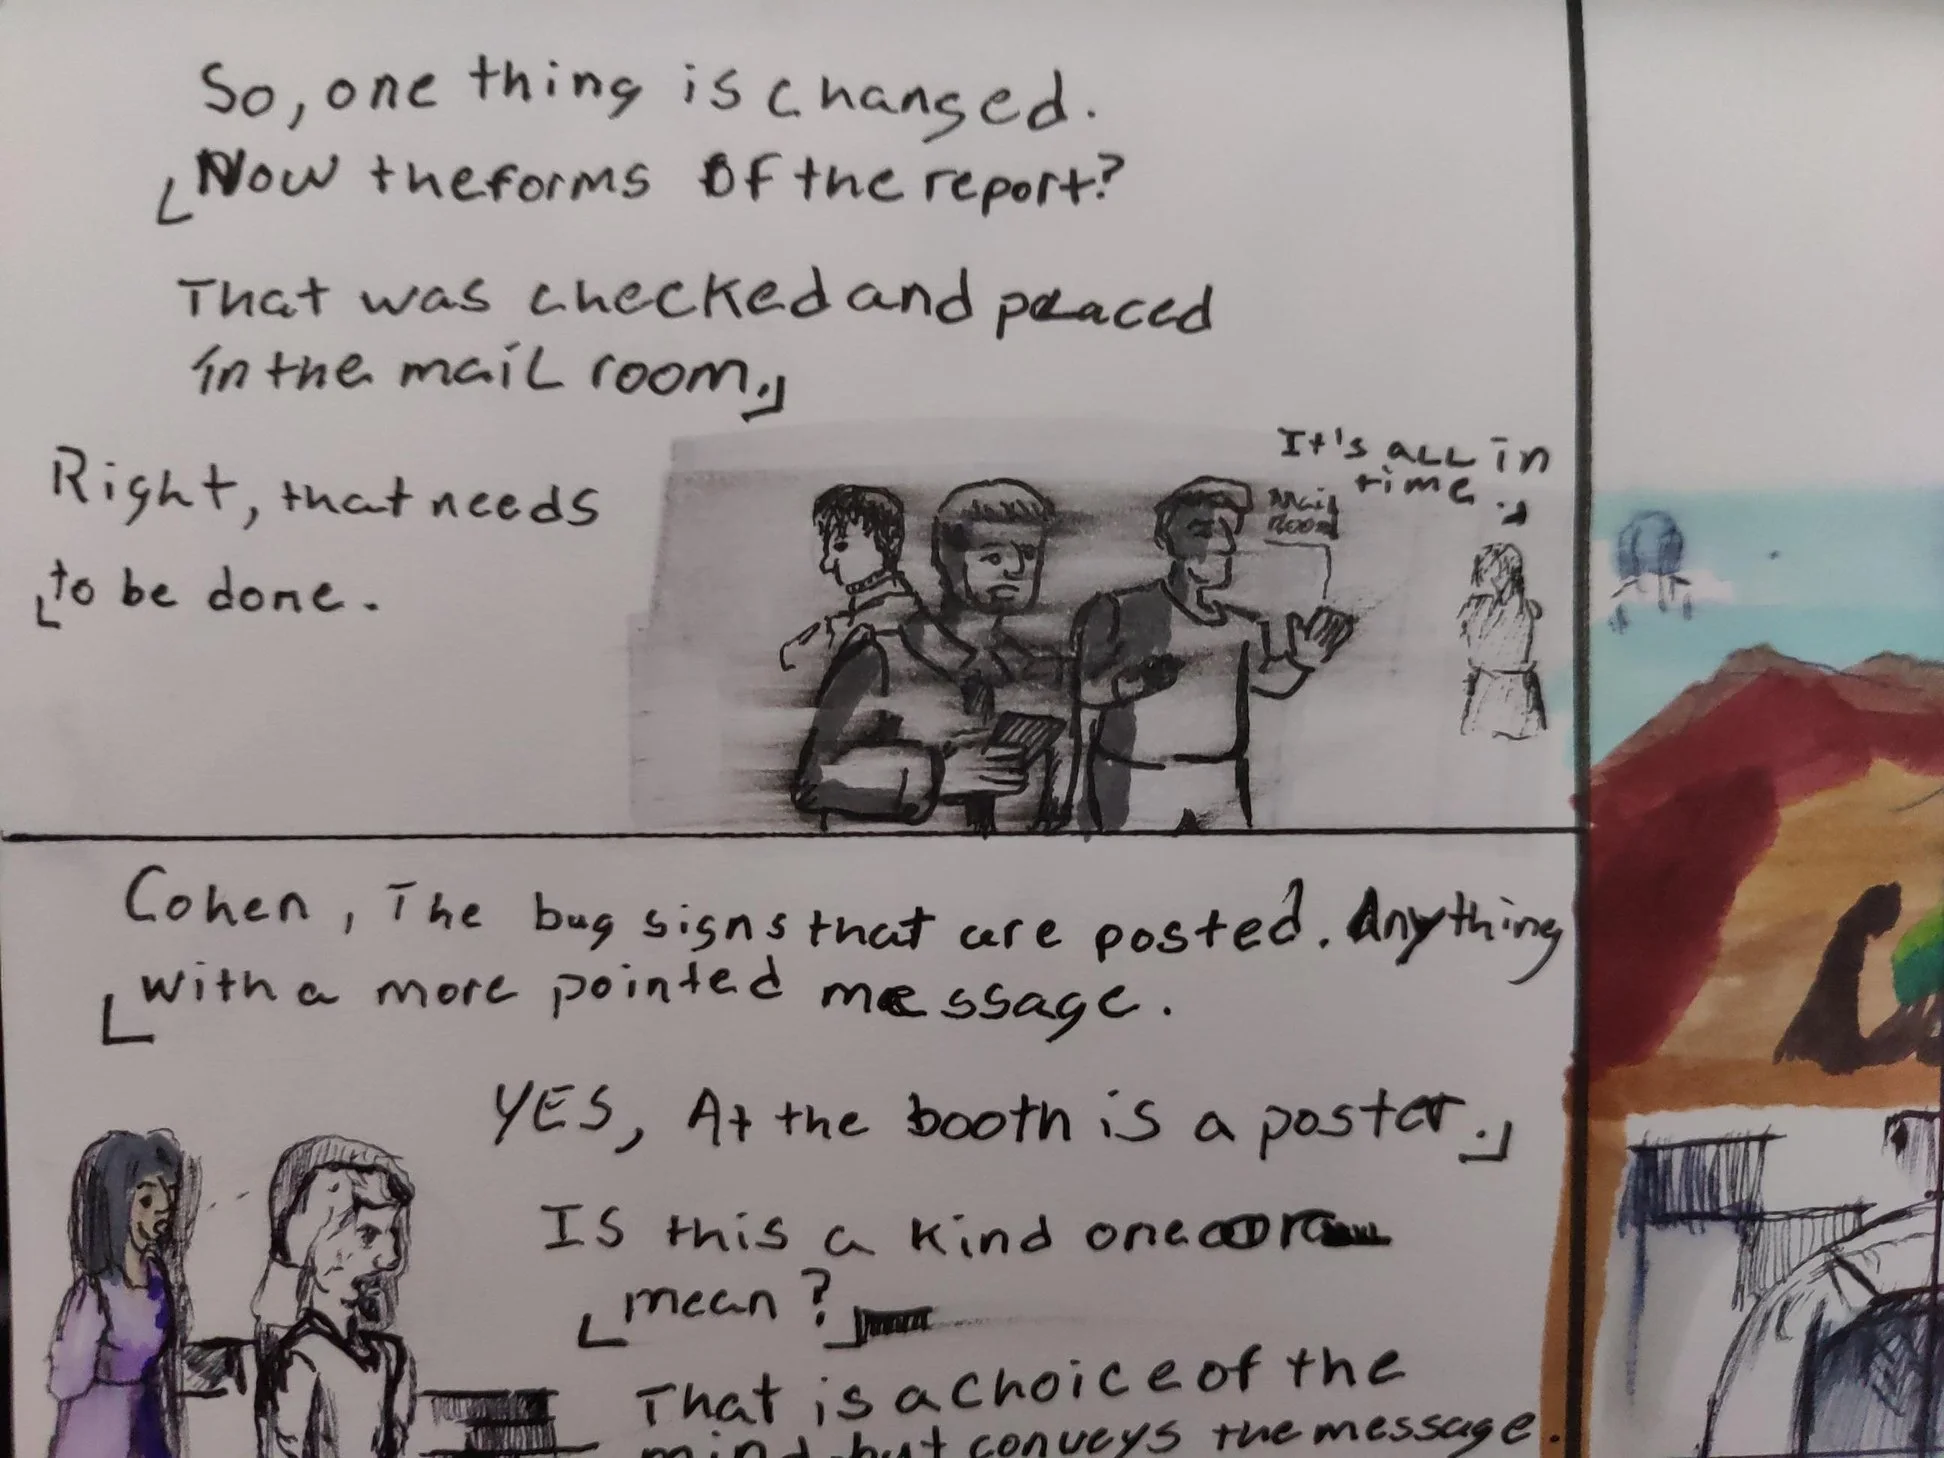 So, one thing is changed.
Now the forms of the report?
That was checked and placed
in the mail room.
Right, that needs
to be done.
It's all in
time.
Mail
Room
Cohen, The bug signs that are posted. Anything
with a more pointed message.
YES, At the booth is a poster.
Is this a kind one or a
mean?
That is a choice of the
mind, but conveys the message.